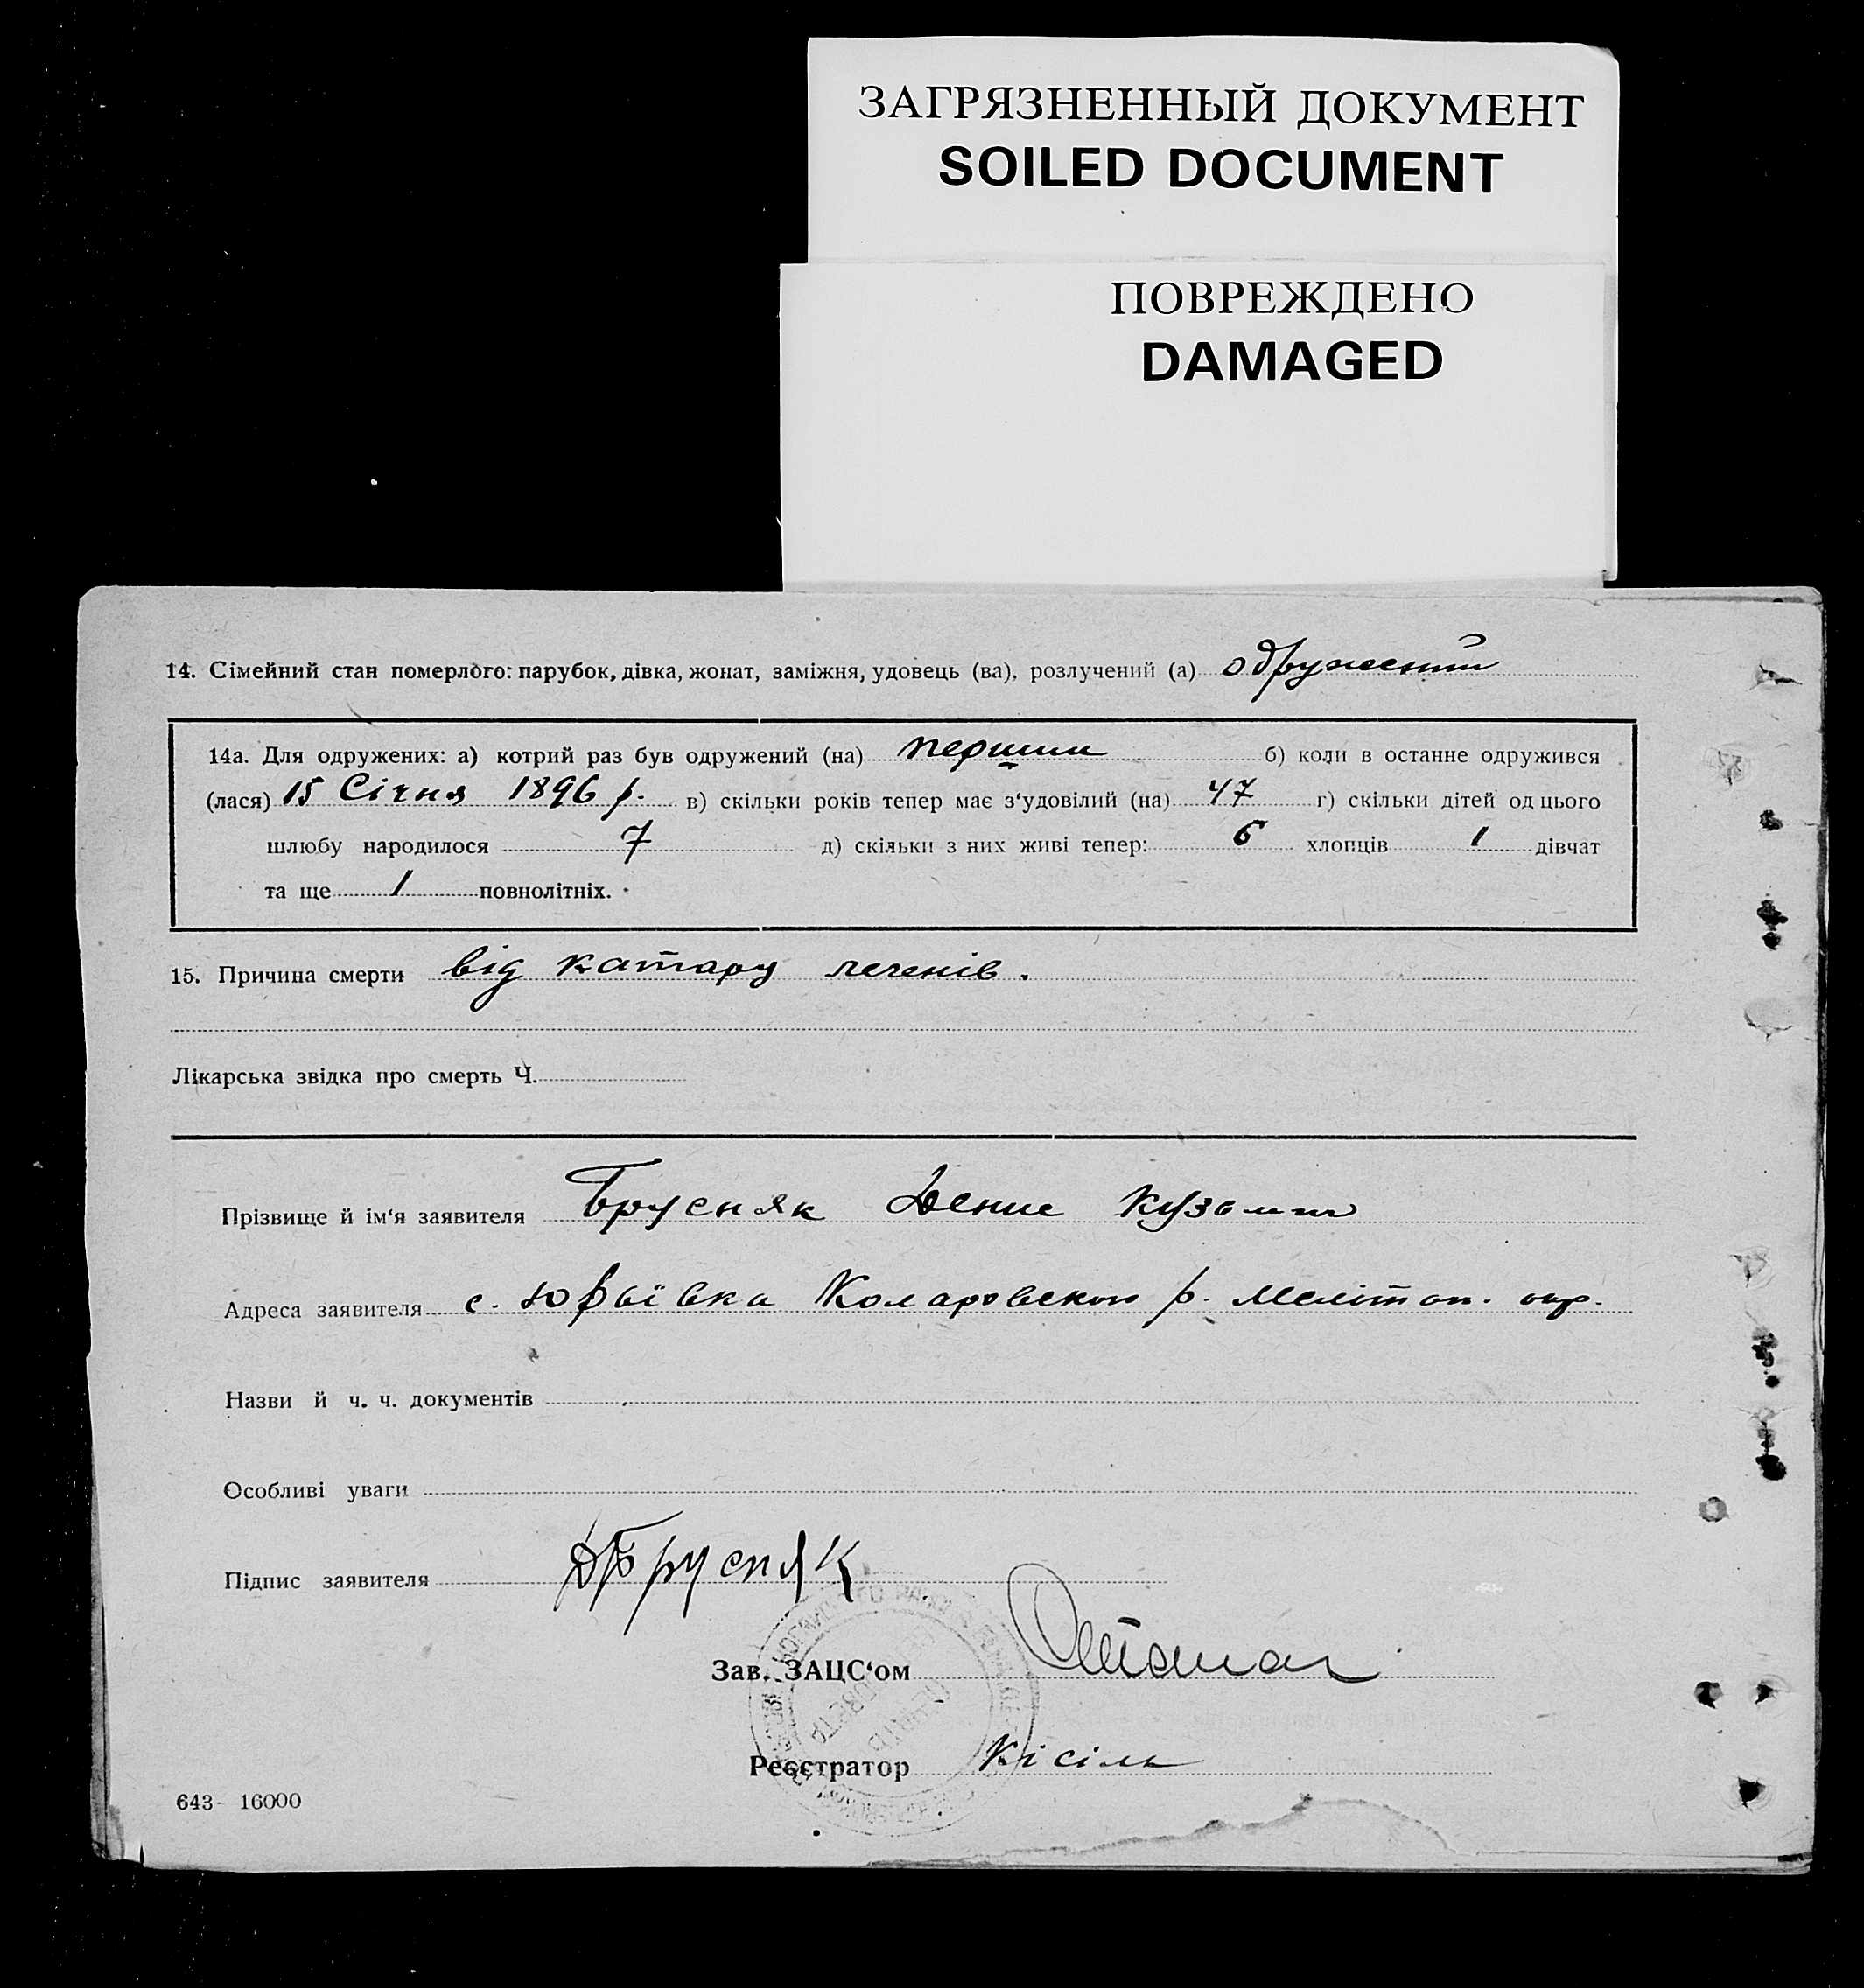 ЗАГРЯЗНЕННЫЙ ДОКУМЕНТ
SOILED DOCUMENT
ПОВРЕЖДЕНО
DAMAGED
14. Сімейний стан померлого: парубок, дівка, жонат, заміжня, удовець (ва), розлучений (а) одружений
14а. Для одружених: а) котрий раз був одружений (на) перший б) коли в останне одружився
(лася) 15 Січня 1896 р. в) скільки років тепер має з‘удовілий (на) 47 г) скільки дітей од цього
шлюбу народилося 7 д) скільки з них живі тепер: 6 хлопців 1 дівчат
та ще 1 повнолітніх.
15. Причина смерти від катару леченів.
Лікарська звідка про смерть Ч.
Прізвище й ім‘я заявителя Брусняк Денис Кузьмич
Адреса заявителя с. Юрьївка Коларовского р. Мелітоп. окр.
Назви й ч. ч. документів
Особливі уваги
Підпис заявителя ДБрусняк
Зав. ЗАЦС‘ом
Реєстратор Кісіль
643- 16000